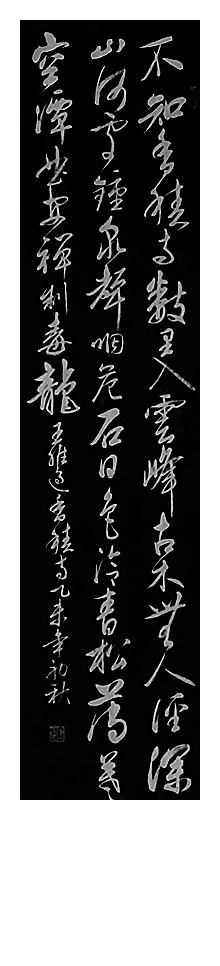 不知香積寺數里入雲峰古木無人徑深
山何處鐘泉聲咽危石日色冷青松薄暮
空潭曲安禪制毒龍王維過香積寺乙未年初秋